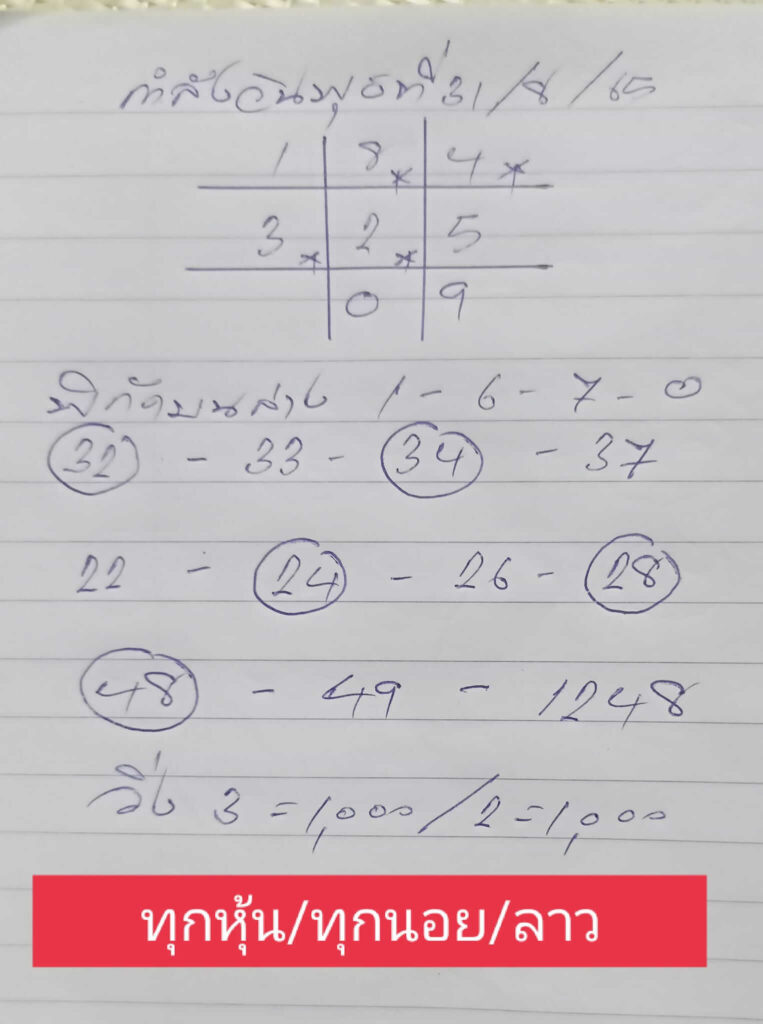 กำลังวันพุธที่ 31/8/65
1 8* 4*
3* 2* 5
0 9
พิกัดบนล่าง 1-6-7-0
32 - 33 - 34 - 37
22 - 24 - 26 - 28
48 - 49 - 1248
วิ่ง 3 = 1,000 / 2 = 1,000
ทุกหุ้น/ทุกนอย/ลาว